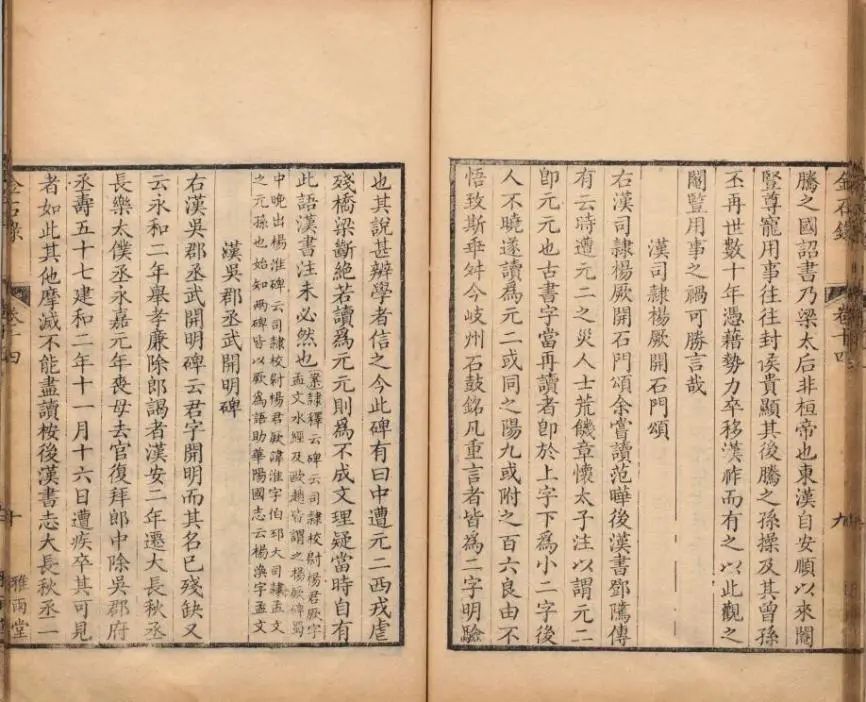 金石錄 卷十四 九
騰之國詔書乃梁太后非桓帝也東漢自安順以來閹
豎尊寵用事往往封侯貴顯其後騰之孫操及其曾孫
丕再世數十年憑藉勢力卒移漢祚而有之以此觀之
閹豎用事之禍可勝言哉
漢司隸楊厥開石門頌
右漢司隸楊厥開石門頌余嘗讀范曄後漢書鄧騭傳
有云時遭元二之災人士荒饑章懷太子注以謂元二
卽元元也古書字當再讀者卽於上字下爲小二字後
人不曉遂讀爲元二或同之陽九或附之百六良由不
悟致斯乖舛今岐州石鼓銘凡重言者皆爲二字明驗
也其說甚辨學者信之今此碑有曰中遭元二西戎虐
殘橋梁斷絕若讀爲元元則爲不成文理疑當時自有
此語漢書注未必然也
案隸釋云碑云司隸校尉楊君厥字
孟文水經及歐趙皆謂之楊厥碑蜀
中晚出楊淮碑云司隸校尉楊君厥諱淮字伯邳大司隸孟文
之元孫也始知兩碑皆以厥爲語助華陽國志云楊渙字孟文
漢吳郡丞武開明碑
右漢吳郡丞武開明碑云君字開明而其名已殘缺又
云永和二年舉孝廉除郎謁者漢安二年遷大長秋丞
長樂太僕丞永嘉元年喪母去官復拜郎中除吳郡府
丞壽五十七建和二年十一月十六日遭疾卒其可見
者如此其他摩滅不能盡讀桉後漢書志大長秋丞一
金石錄 卷十四 十 雅雨堂